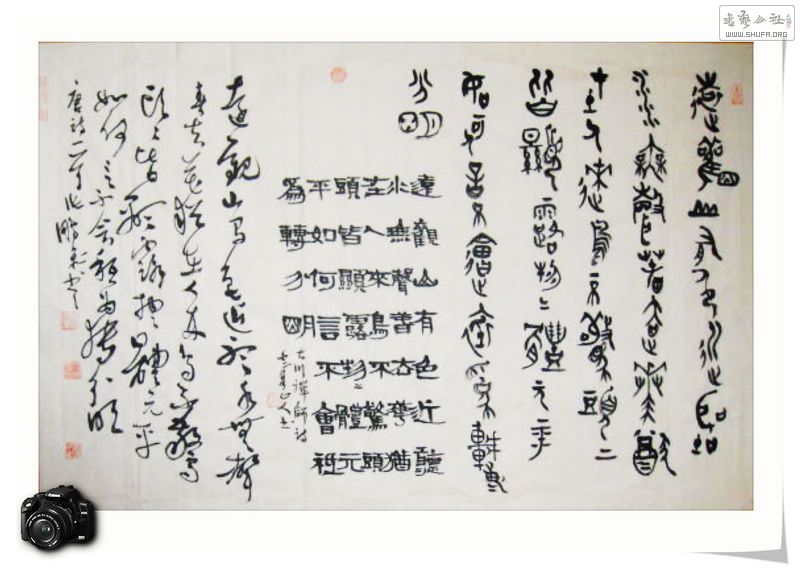 书艺公社
WWW.SHUFA.ORG
遠觀山有色近聽
水無聲春去花猶
在人來鳥不驚頭〻
皆顯露物〻體元平
如何言不會祗為轉
分明
遠觀山有色近聽
水無聲春去華猶
在人來鳥不驚頭
頭皆顯露物〻體元
平如何言不會祗
為轉分明
川禪師詩
遠觀山有色近聽水無聲
春去花猶在人來鳥不驚
頭〻皆顯露物〻體元平
如何言不會祗為轉分明
唐詩一首
Canon